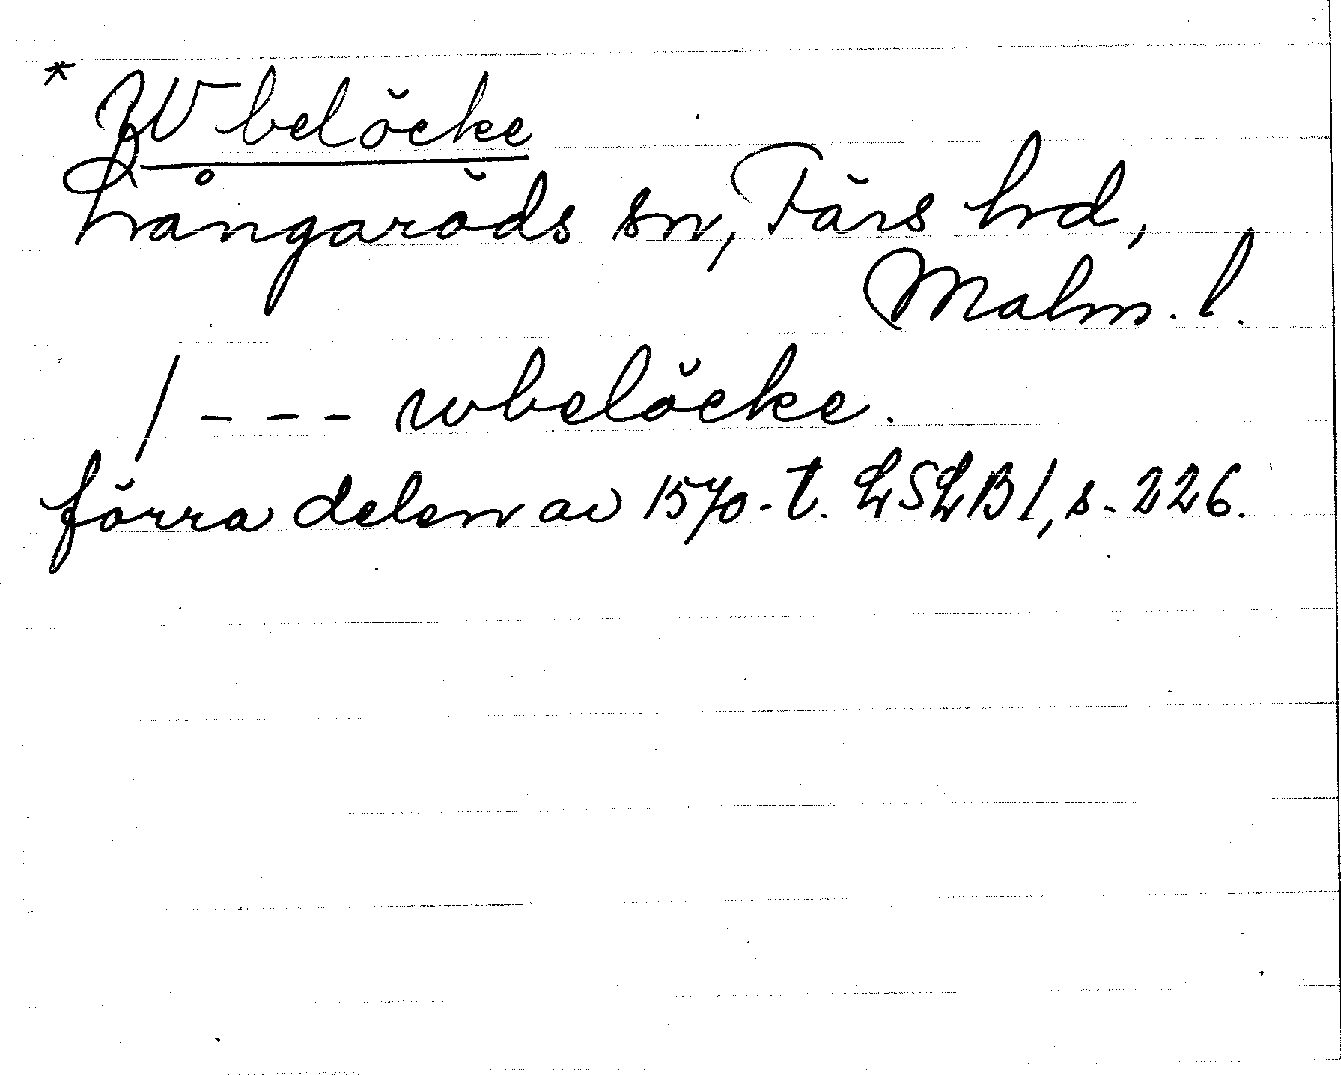 * Wbelöcke
Långaröds sn, Färs hd,
Malm. l.
/ - - - wbelöcke.
förra delen av 1570-t. LSLB 1, s. 226.